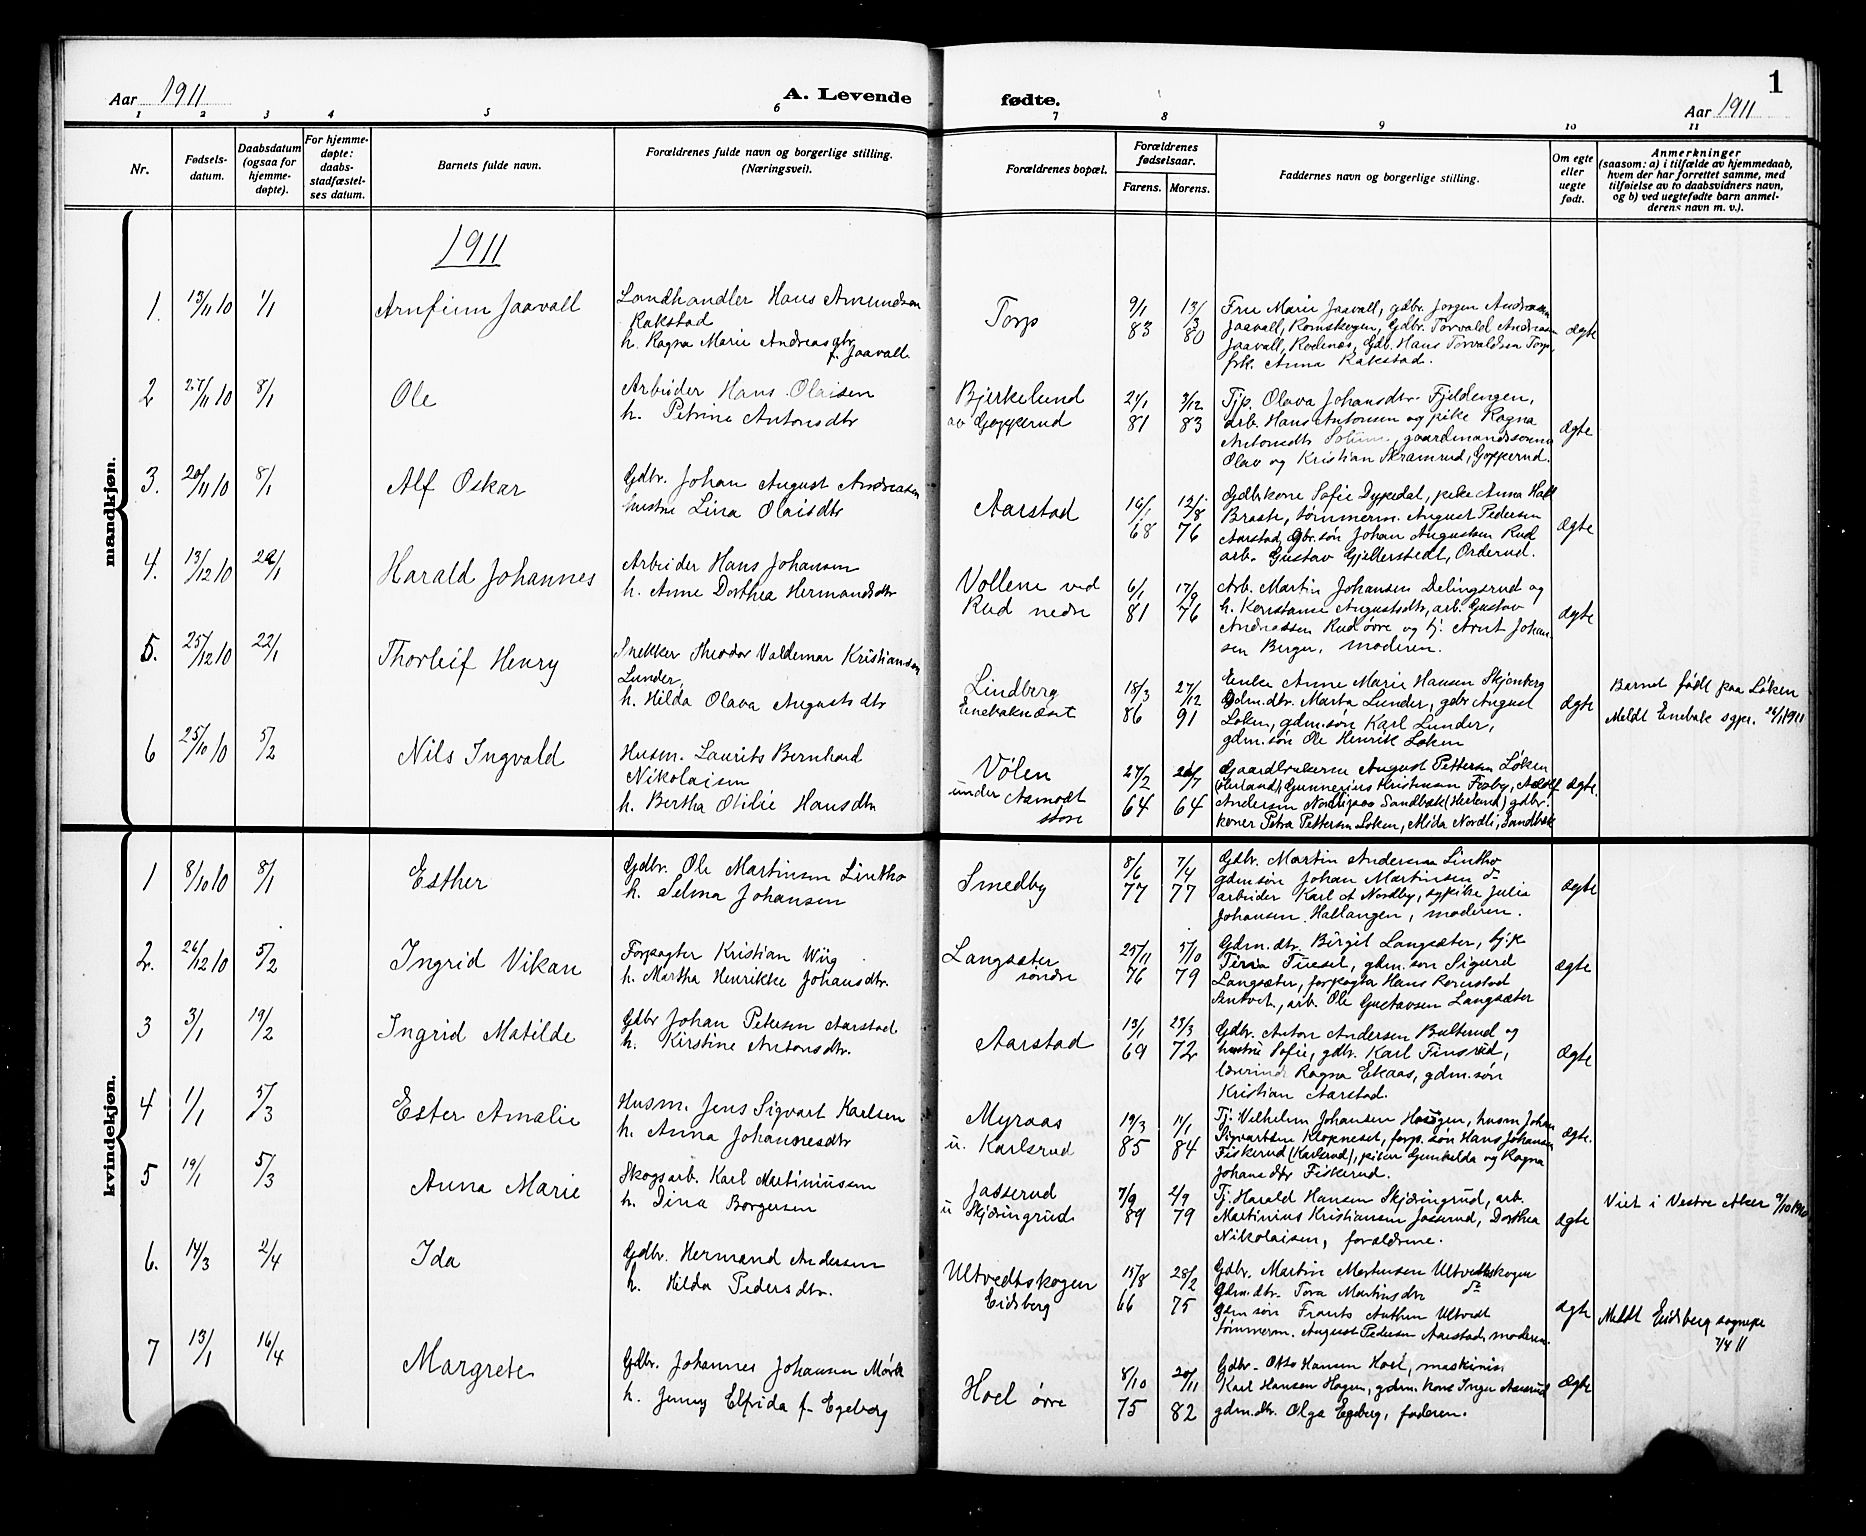 Aar 1911
A. Levende
fødte.
Aar 1911
1
1 2 3 4 5 6 7 8 9 10 11
Nr.
Fødsels-
datum.
Daabsdatum
(ogsaa for
hjemme-
døpte).
For hjemme-
døpte:
daabs-
stadfæstel-
ses datum.
Barnets fulde navn.
Forældrenes fulde navn og borgerlige stilling.
(Næringsvei).
Forældrenes bopæl.
Forældrenes
fødselsaar.
Farens. Morens.
Faddernes navn og borgerlige stilling.
Om egte
eller
uegte
født.
Anmerkninger
(saasom: a) i tilfælde av hjemmedaab,
hvem der har forrettet samme, med
tilføielse av to daabsvidners navn,
og b) ved uegtefødte barn anmel-
derens navn m. v.).
mandkjøn.
1911
1. 13/11 10 1/1
Arnfinn Jaavall
Landhandler Hans Amundsen
Rakstad
h. Ragna Marie Andreasdtr
f. Jaavall
Torp
9/1 83
13/3 80
Frue Marie Jaavall, gdbr. Jørgen Andreasen
Jaavall, Romskogen, Gdbr. Torvald Andreasen
Jaavall, Rødenes, Gdb. Hans Torvaldsen Torp,
frk. Anna Rakstad.
ægte
2 27/11 10 8/1
Ole
Arbeider Hans Olaisen
h. Petrine Antonsdtr
Bjerkelund
av Gopperud
24/1 81
3/12 83
Tjp. Olava Johansdtr. Fjeldengen,
arb. Hans Antonsen og pike Ragna
Antonsdtr Solum, gaardmandssønne
Olav og Kristian Skramrud, Gopperud.
ægte
3. 20/11 10 8/1
Alf Oskar
Gdbr. Johan August Andreasen
hustru Lina Olaisdtr
Aarstad
16/1 68
12/8 76
Gdbrkone Sofie Dypedal, pike Anna
Braate, tømmerm. August Pedersen
Aarstad, Gbr. søn Johan Augustsen Rud
arb. Gustav Gjellerstedt, Orderud.
ægte
4. 13/12 10 22/1
Harald Johannes
Arbeider Hans Johansen
h. Anne Dorthea Hermandsdtr
Vollene ved
Rud nedre
6/1 81
17/9 76
Arb. Martin Johansen Delingsrud og
h. Konstanse Augustsdtr, arb. Gustav
Andreassen Rud øvre og tj. Arnt Johan-
sen Berger, moderen.
ægte
5. 25/12 10 22/1
Thorleif Henry
Snekker Theodor Valdemar Kristiansen
Lunder,
h. Hilda Olava Augustsdtr
Lindberg
Enebaknæset
18/3 86
27/12 91
Enke Anne Marie Hansen Skjønberg
Gdm.dtr. Marta Lunder, gdbr August
Løken, gdm.søn Karl Lunder,
gdm.søn Ole Henrik Løken
ægte
Barnet født paa Løken
Meldt Enebak sgpr. 26/1 1911
6 25/10 10 5/2
Nils Ingvald
Husm. Laurits Bernhard
Nikolaisen
h. Bertha Otilie Hansdtr
Vølen
under Aamodt
store
27/2 64
64
Gaardbrukerne August Pettersen Løken
(Herland), Gunnerius Kristiansen Fosby, Adolf
Andersen Nordli, Sandbæk (Herland), gdbr.
koner Petra Pettersen Løken, Mida Nordli, Sandbæk
ægte.
kvindekjøn.
1 8/10 10 8/1
Esther
Gdbr. Ole Martinsen Lintho
h. Selma Johansen
Smedby
8/6 77
7/4 77
Gdbr. Martin Andersen Lintho
gdm.søn Johan Martinsen do
arbeider Karl A Nordby, sypike Julie
Johansen Hallangen, moderen.
ægte
2. 26/12 10 5/2
Ingrid Vikan
Forpagter Kristian Wiig
h. Martha Henrikke Johansdtr.
Langsæter
søndre
25/11 76
5/10 79
Gdm.dtr. Birgit Langsæter, tj.k
Tirsa Tueset, gdm.søn Sigurd
Langsæter, forpagter Hans
arb. Ole Gustavsen Langsæter
ægte
3 3/1 19/2
Ingrid Matilde
Gdbr Johan Petersen Aarstad
h. Kirstine Antonsdtr.
Aarstad
13/1 69
23/3 72
Gdbr. Anton Andersen Bulterud og
hustru Sofie, gdbr. Karl Finsrud,
lærerinde Ragna Ekaas, gdm.søn
Kristian Aarstad.
Ægte
4 1/1 5/3
Ester Amalie
Husm. Jens Sigvart Karlsen
h. Anna Johannesdtr
Myraas
u. Karlsrud
19/3 85
11/1 84
Tj. Vilhelm Johansen Haugen, husm Johan
Sigvartsen Klopneset, forp. søn Hans Johansen
Fiskerud (Karlsrud), piker Gunhilda og Ragna
Johansdtr Fiskerud.
ægte.
5 19/1 5/3
Anna Marie
Skogsarb. Karl Martiniussen
h. Dina Borgersen
Jasserud
u Skjæringrud
7/9 89
2/9 79
Tj. Harald Hansen Skjæringrud, arb.
Martinius Kristiansen Jasserud, Dorthea
Nikolaisen, forældrene.
ægte
Viet i Vestre Aker 9/10 1910
6. 14/3 2/4
Ida
Gdbr. Hermand Andersen
h. Hilda Pedersdtr.
Ultvedtskogen
Eidsberg
15/8 66
28/2 75
Gdbr. Martin Mortensen Ultvedtskogen
Gdm.dtr. Tora Martinsdtr do
Gdm søn Frants Anthon Ultvedt
tømmerm. August Pedersen Aarstad, moderen
ægte
Meldt Eidsberg sognepr
7/4 11
7 13/1 16/4
Margrete
Gdbr. Johannes Johansen Mørk
h. Jenny Elfrida f. Egeberg
Hoel øvre
8/10 75
20/11 82
Gdbr. Otto Hansen Hoel, maskinis
Karl Hansen Hagen, gdm. kone Inger Aaserud
gdm.dtr. Olga Egeberg, faderen.
Ægte